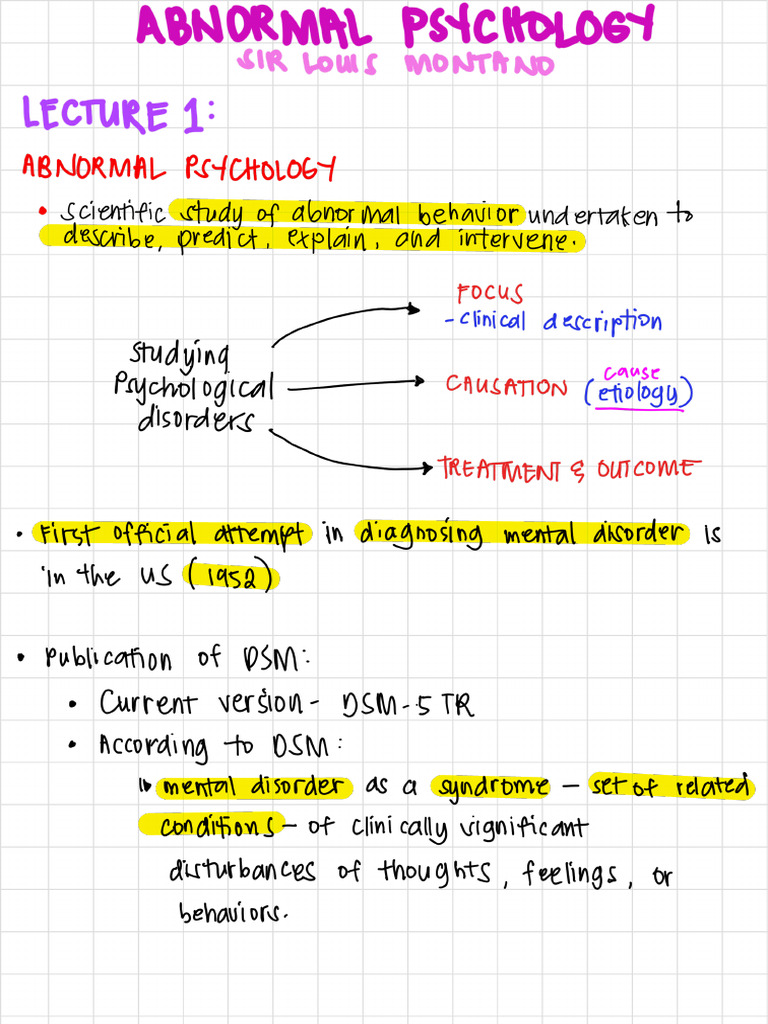 ABNORMAL PSYCHOLOGY
SIR LOUIS MONTANO
LECTURE 1:
ABNORMAL PSYCHOLOGY
• scientific study of abnormal behavior undertaken to
describe, predict, explain, and intervene.
FOCUS
- clinical description
Studying
Psychological
disorders
cause
CAUSATION (etiology)
TREATMENT & OUTCOME
• First official attempt in diagnosing mental disorder is
in the US (1952)
• Publication of DSM:
• Current version - DSM-5 TR
• According to DSM:
↳ mental disorder as a syndrome – set of related
conditions – of clinically significant
disturbances of thoughts, feelings, or
behaviors.